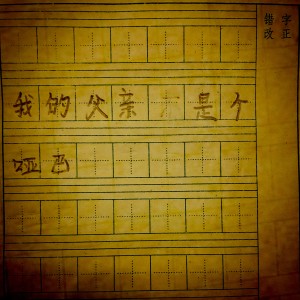 错字
改正
我的父亲是个
哑巴